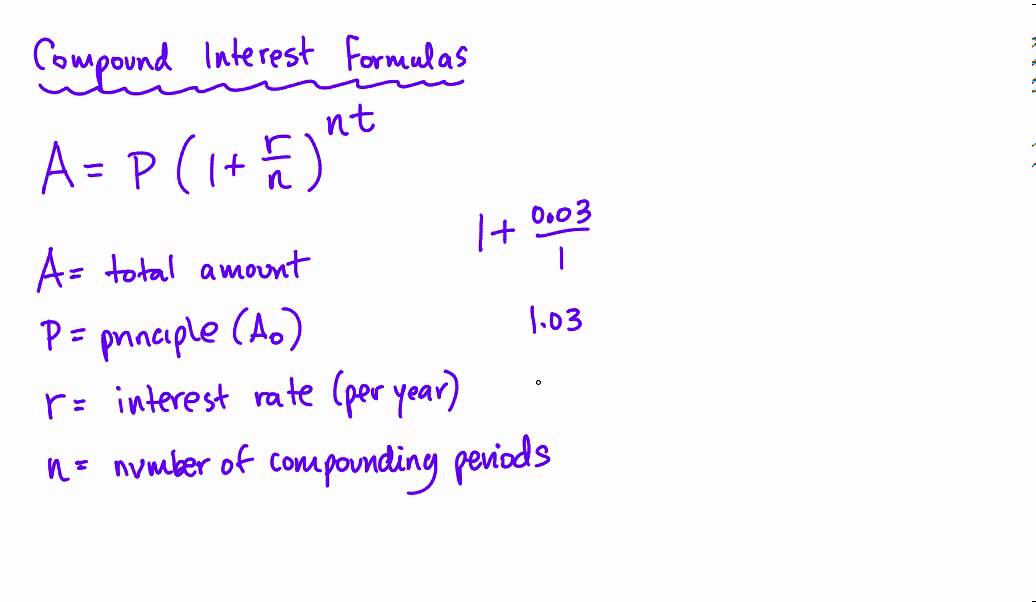 Compound Interest Formulas
A = P (1 + r/n)^nt
1 + 0.03/1
A = total amount
1.03
P = principle (A₀)
r = interest rate (per year)
n = number of compounding periods